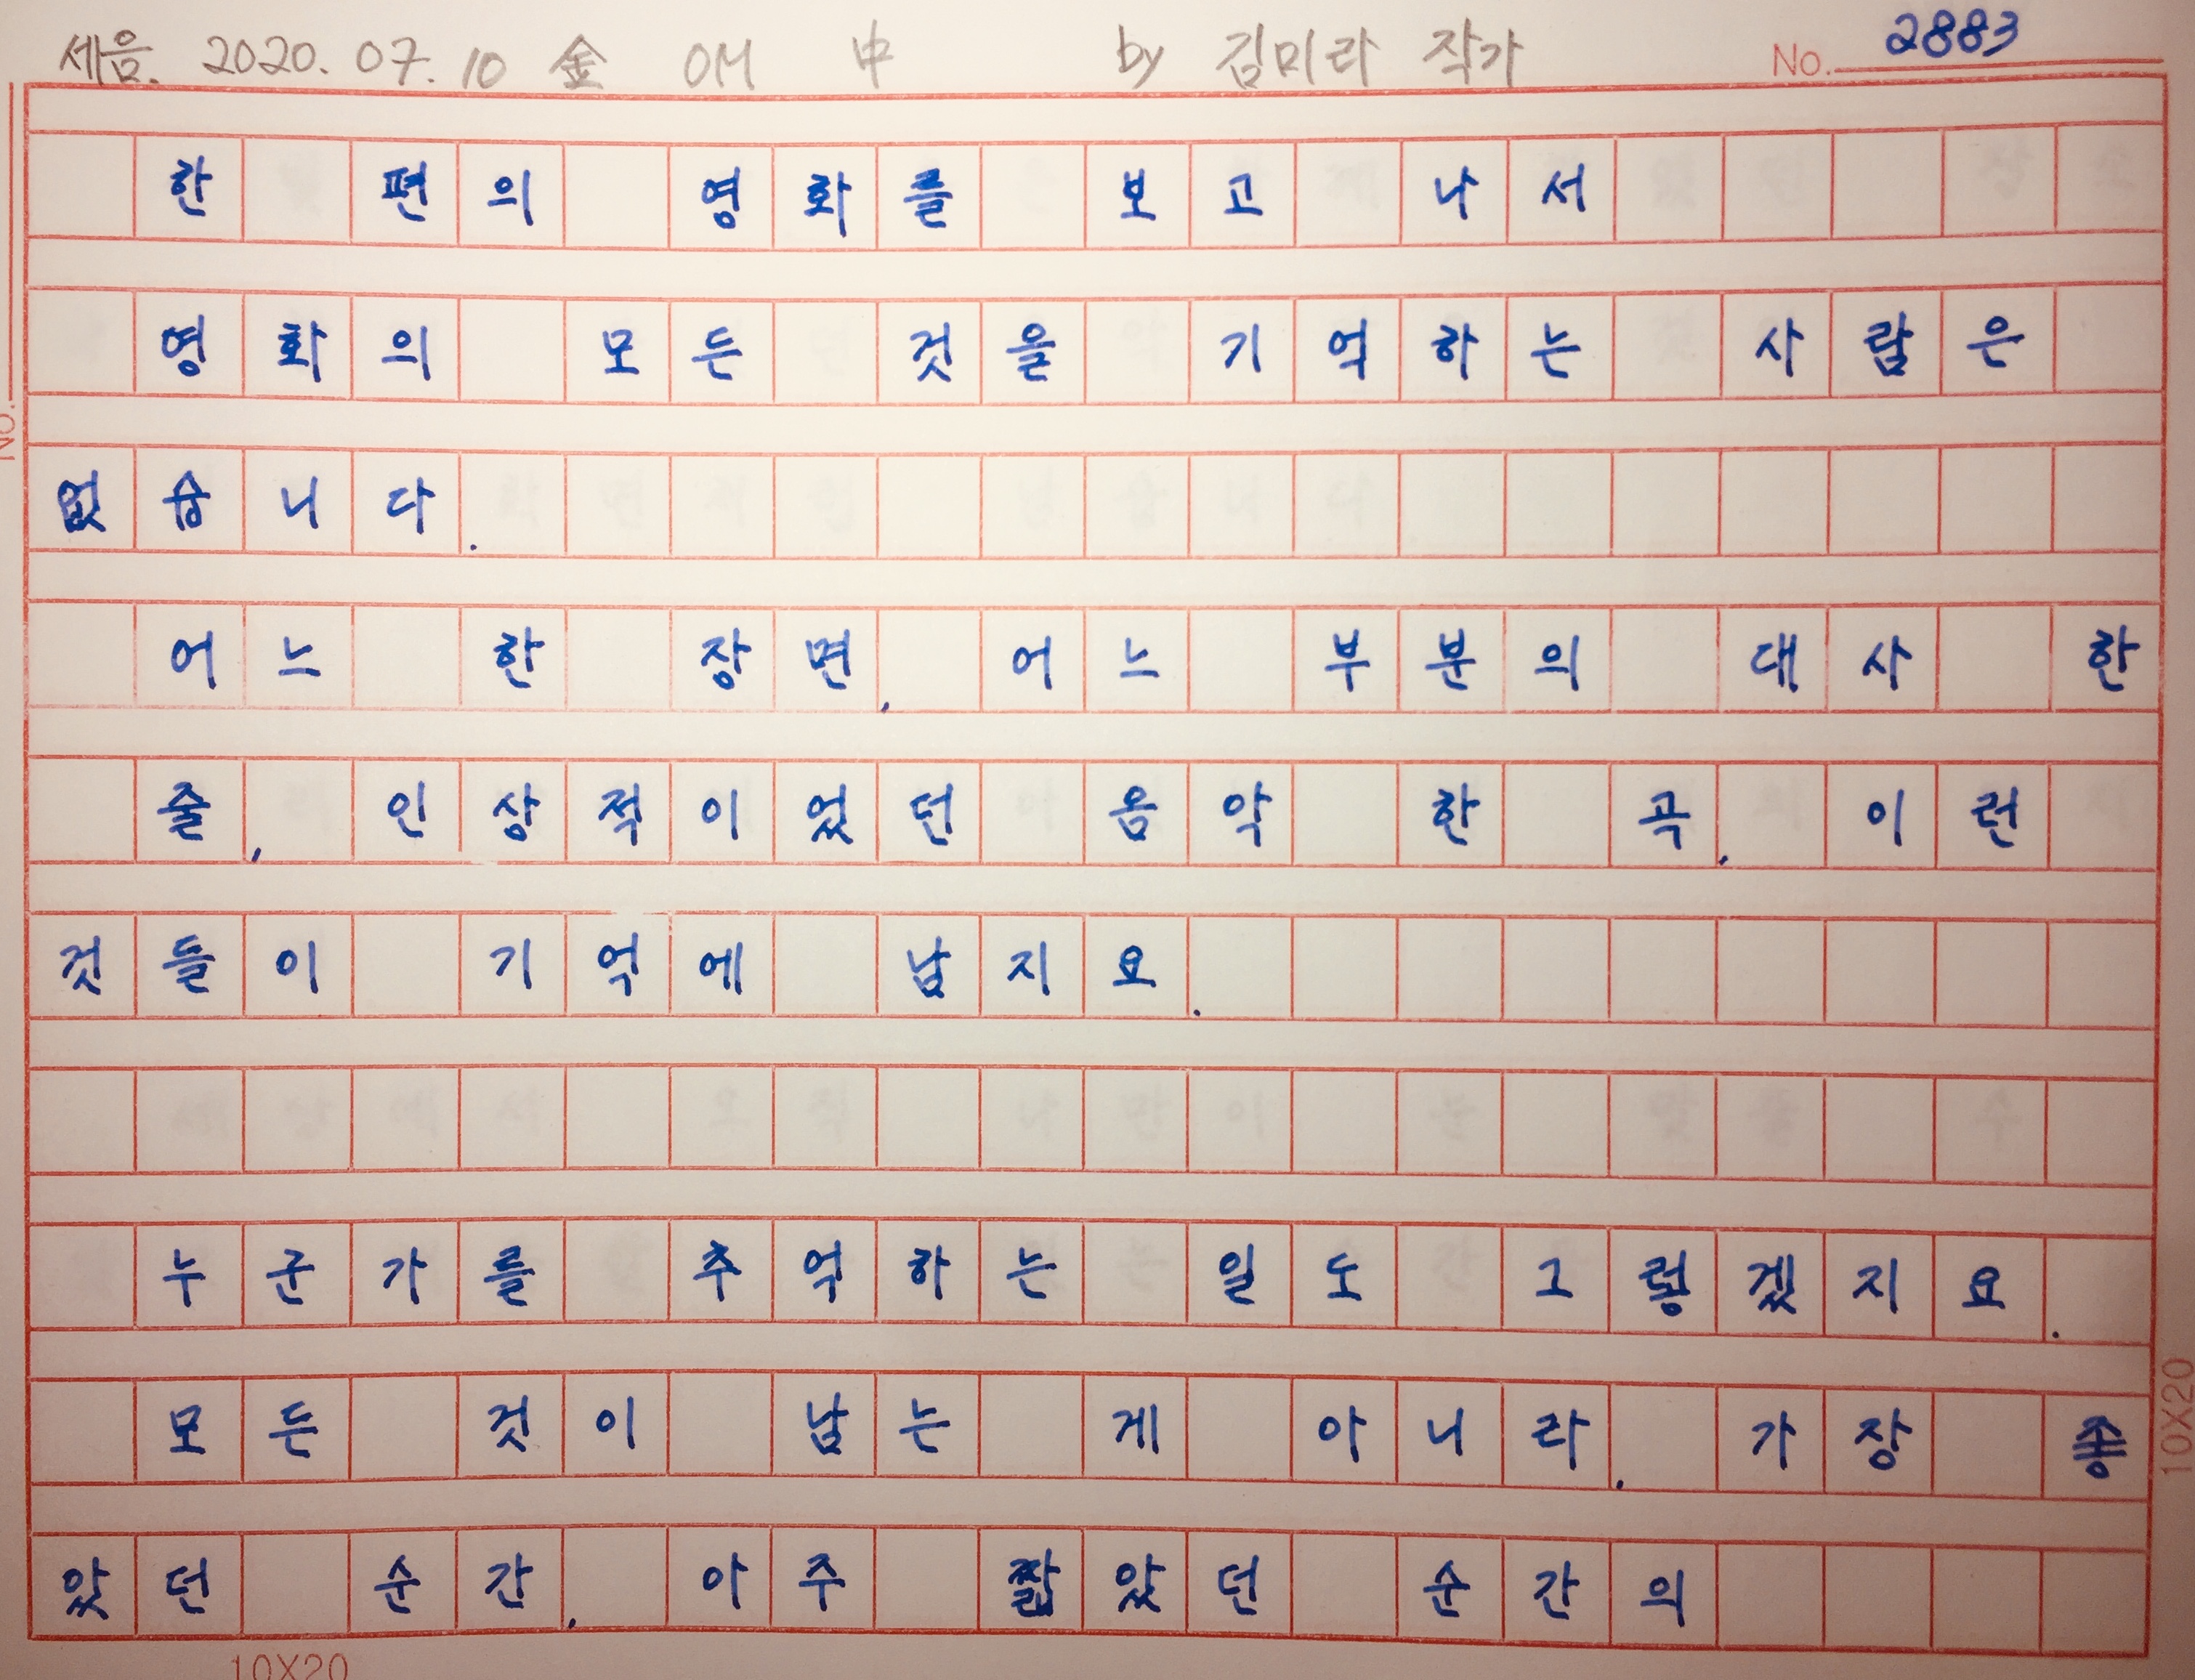 세음. 2020. 07. 10 金 OM 中 by 김미라 작가 No. 2883
한 편의 영화를 보고 나서
영화의 모든 것을 기억하는 사람은
없습니다.
어느 한 장면, 어느 부분의 대사 한
줄, 인상적이었던 음악 한 곡, 이런
것들이 기억에 남지요.
누군가를 추억하는 일도 그렇겠지요.
모든 것이 남는 게 아니라, 가장 좋
았던 순간, 아주 짧았던 순간의
No.
10X20
10X20